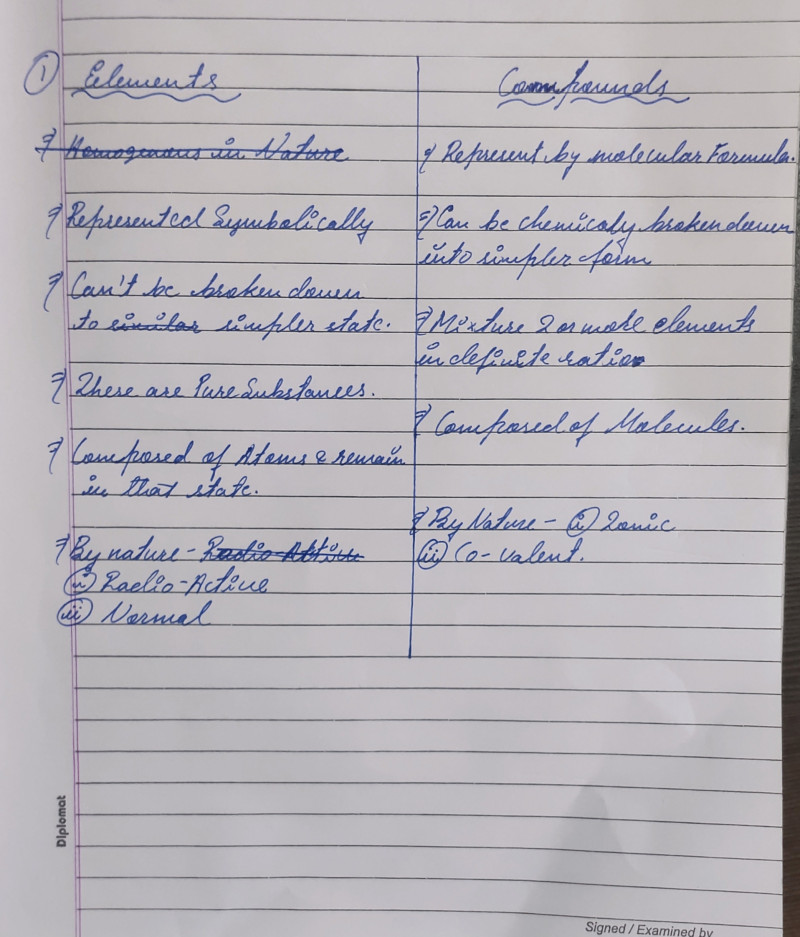 ① Elements
⇒ Homogenous in Nature
⇒ Represented Symbolically
⇒ Can't be broken down
to similar simpler state.
⇒ These are Pure Substances.
⇒ Composed of Atoms & remain
in that state.
⇒ By nature - Radio-Active
(i) Radio-Active
(ii) Normal
Compounds
⇒ Represent by molecular Formula.
⇒ Can be chemicaly broken down
into simpler form
⇒ Mixture 2 or more elements
in definite ratio
⇒ Composed of Molecules.
⇒ By Nature - (i) Ionic
(ii) Co-valent.
Diplomat
Signed / Examined by